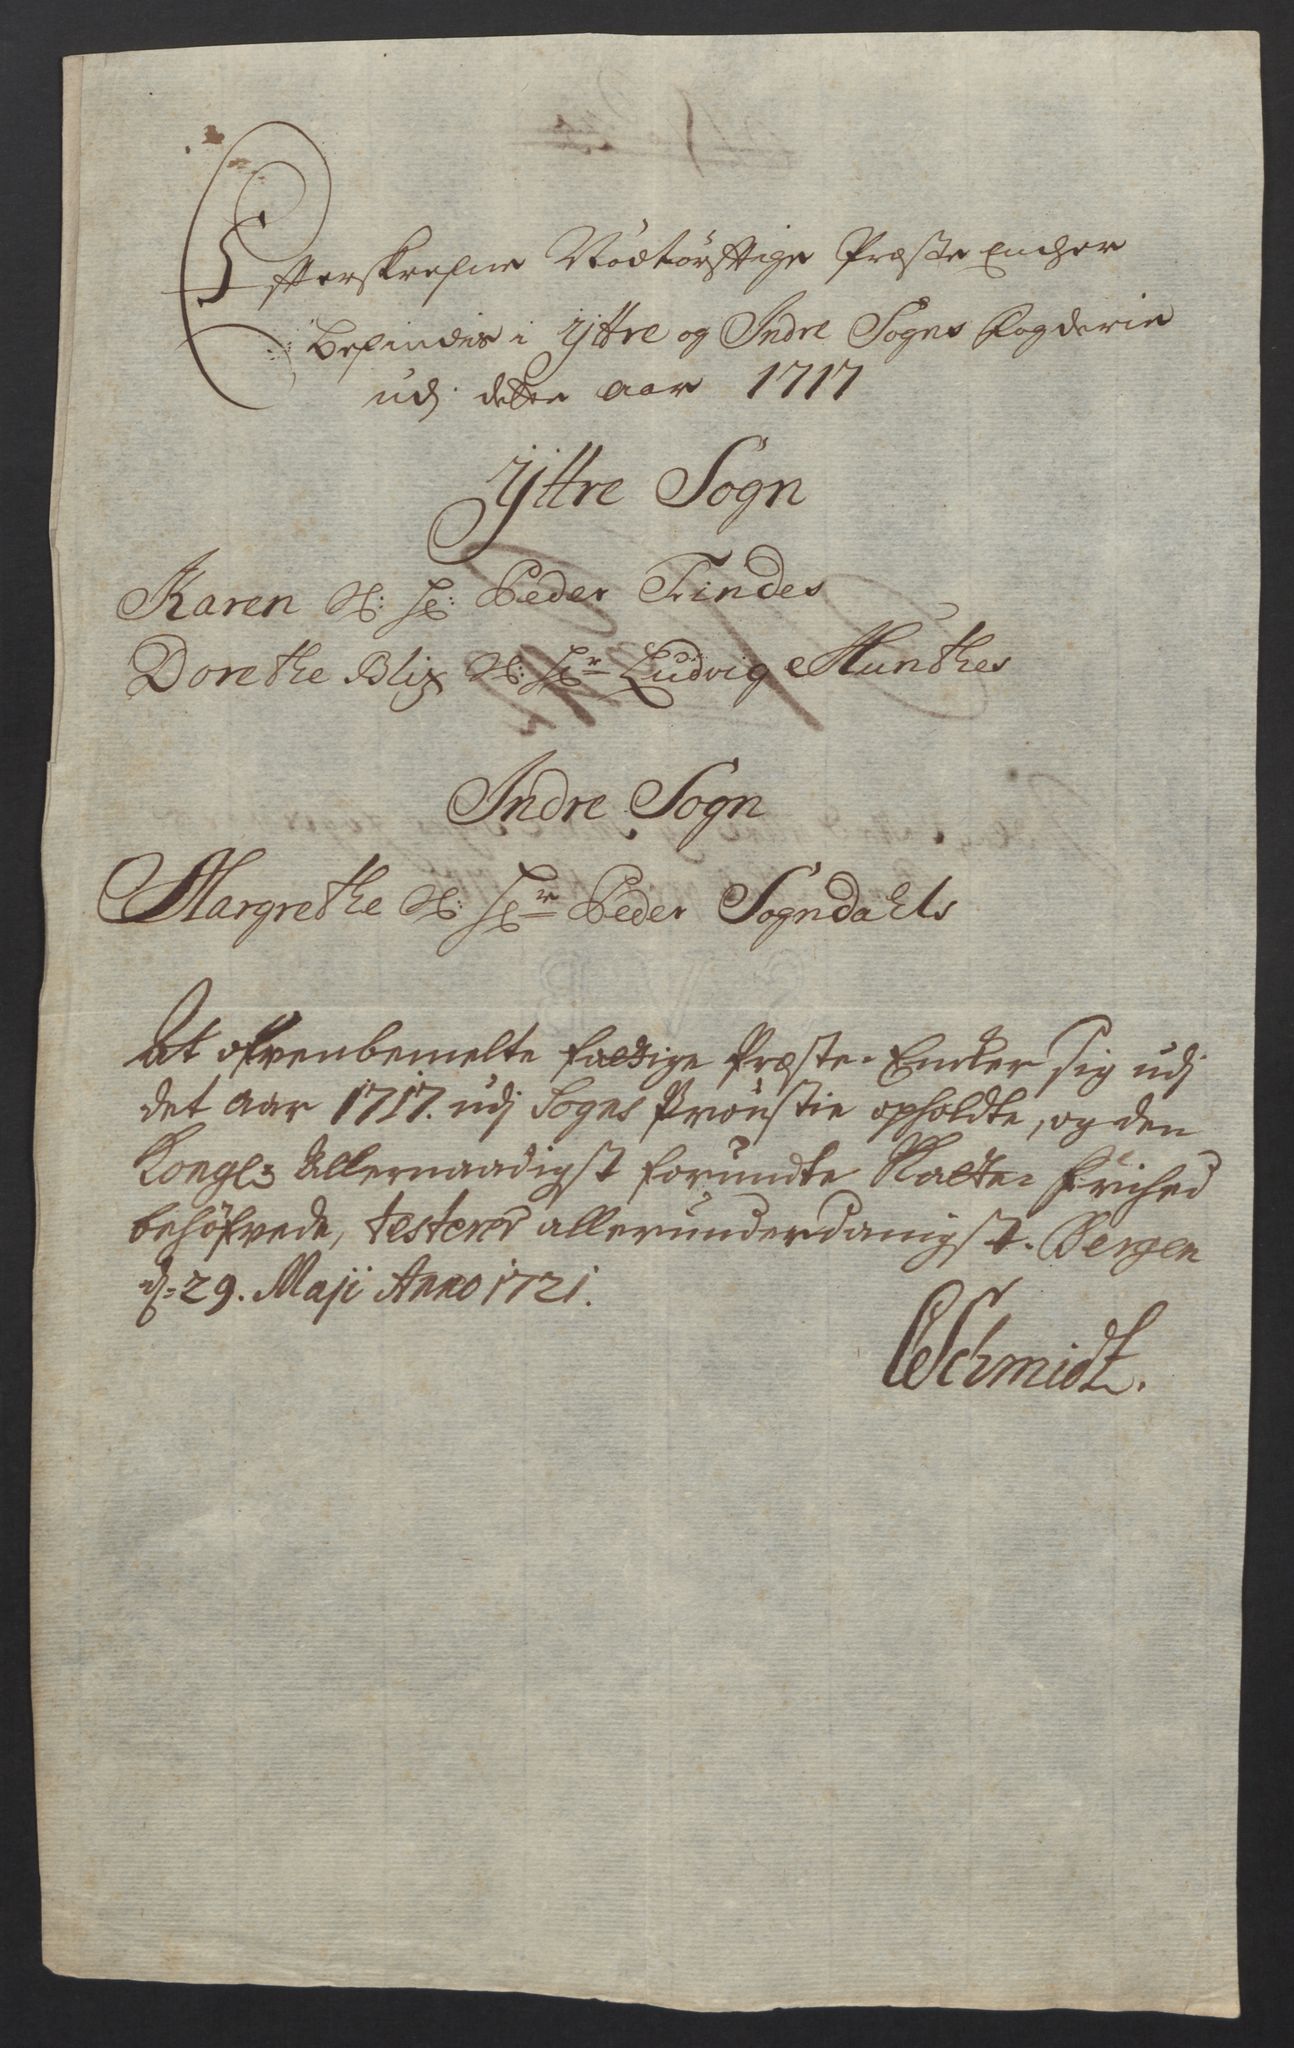 Efterskrefne Nödtörfftige Præste Encher
befindes i Yttre og Indre Sogns Fogderie
udj dette aar 1717
Yttre Sogn
Karen S: Hr: Peder Tindes
Dorethe Blix S: Hr Ludvig Munthes
Indre Sogn
Margrethe S: Hr Peder Sogndahls
At ofvenbemelte fattige Præste-Encker sig udj
det aar 1717. udj Sogns Provstie opholdte, og den
Kongl: Allernaadigst forundte Skatte-Frihed
behöfvede, testerer allerunderdanigst. Bergen
d: 29. Maji Anno 1721.
CSchmidt.